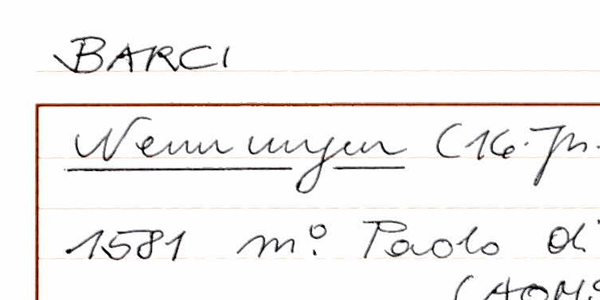 BARCI
Nennungen (16. Jh.
1581 m.º Paolo di
(AOMS